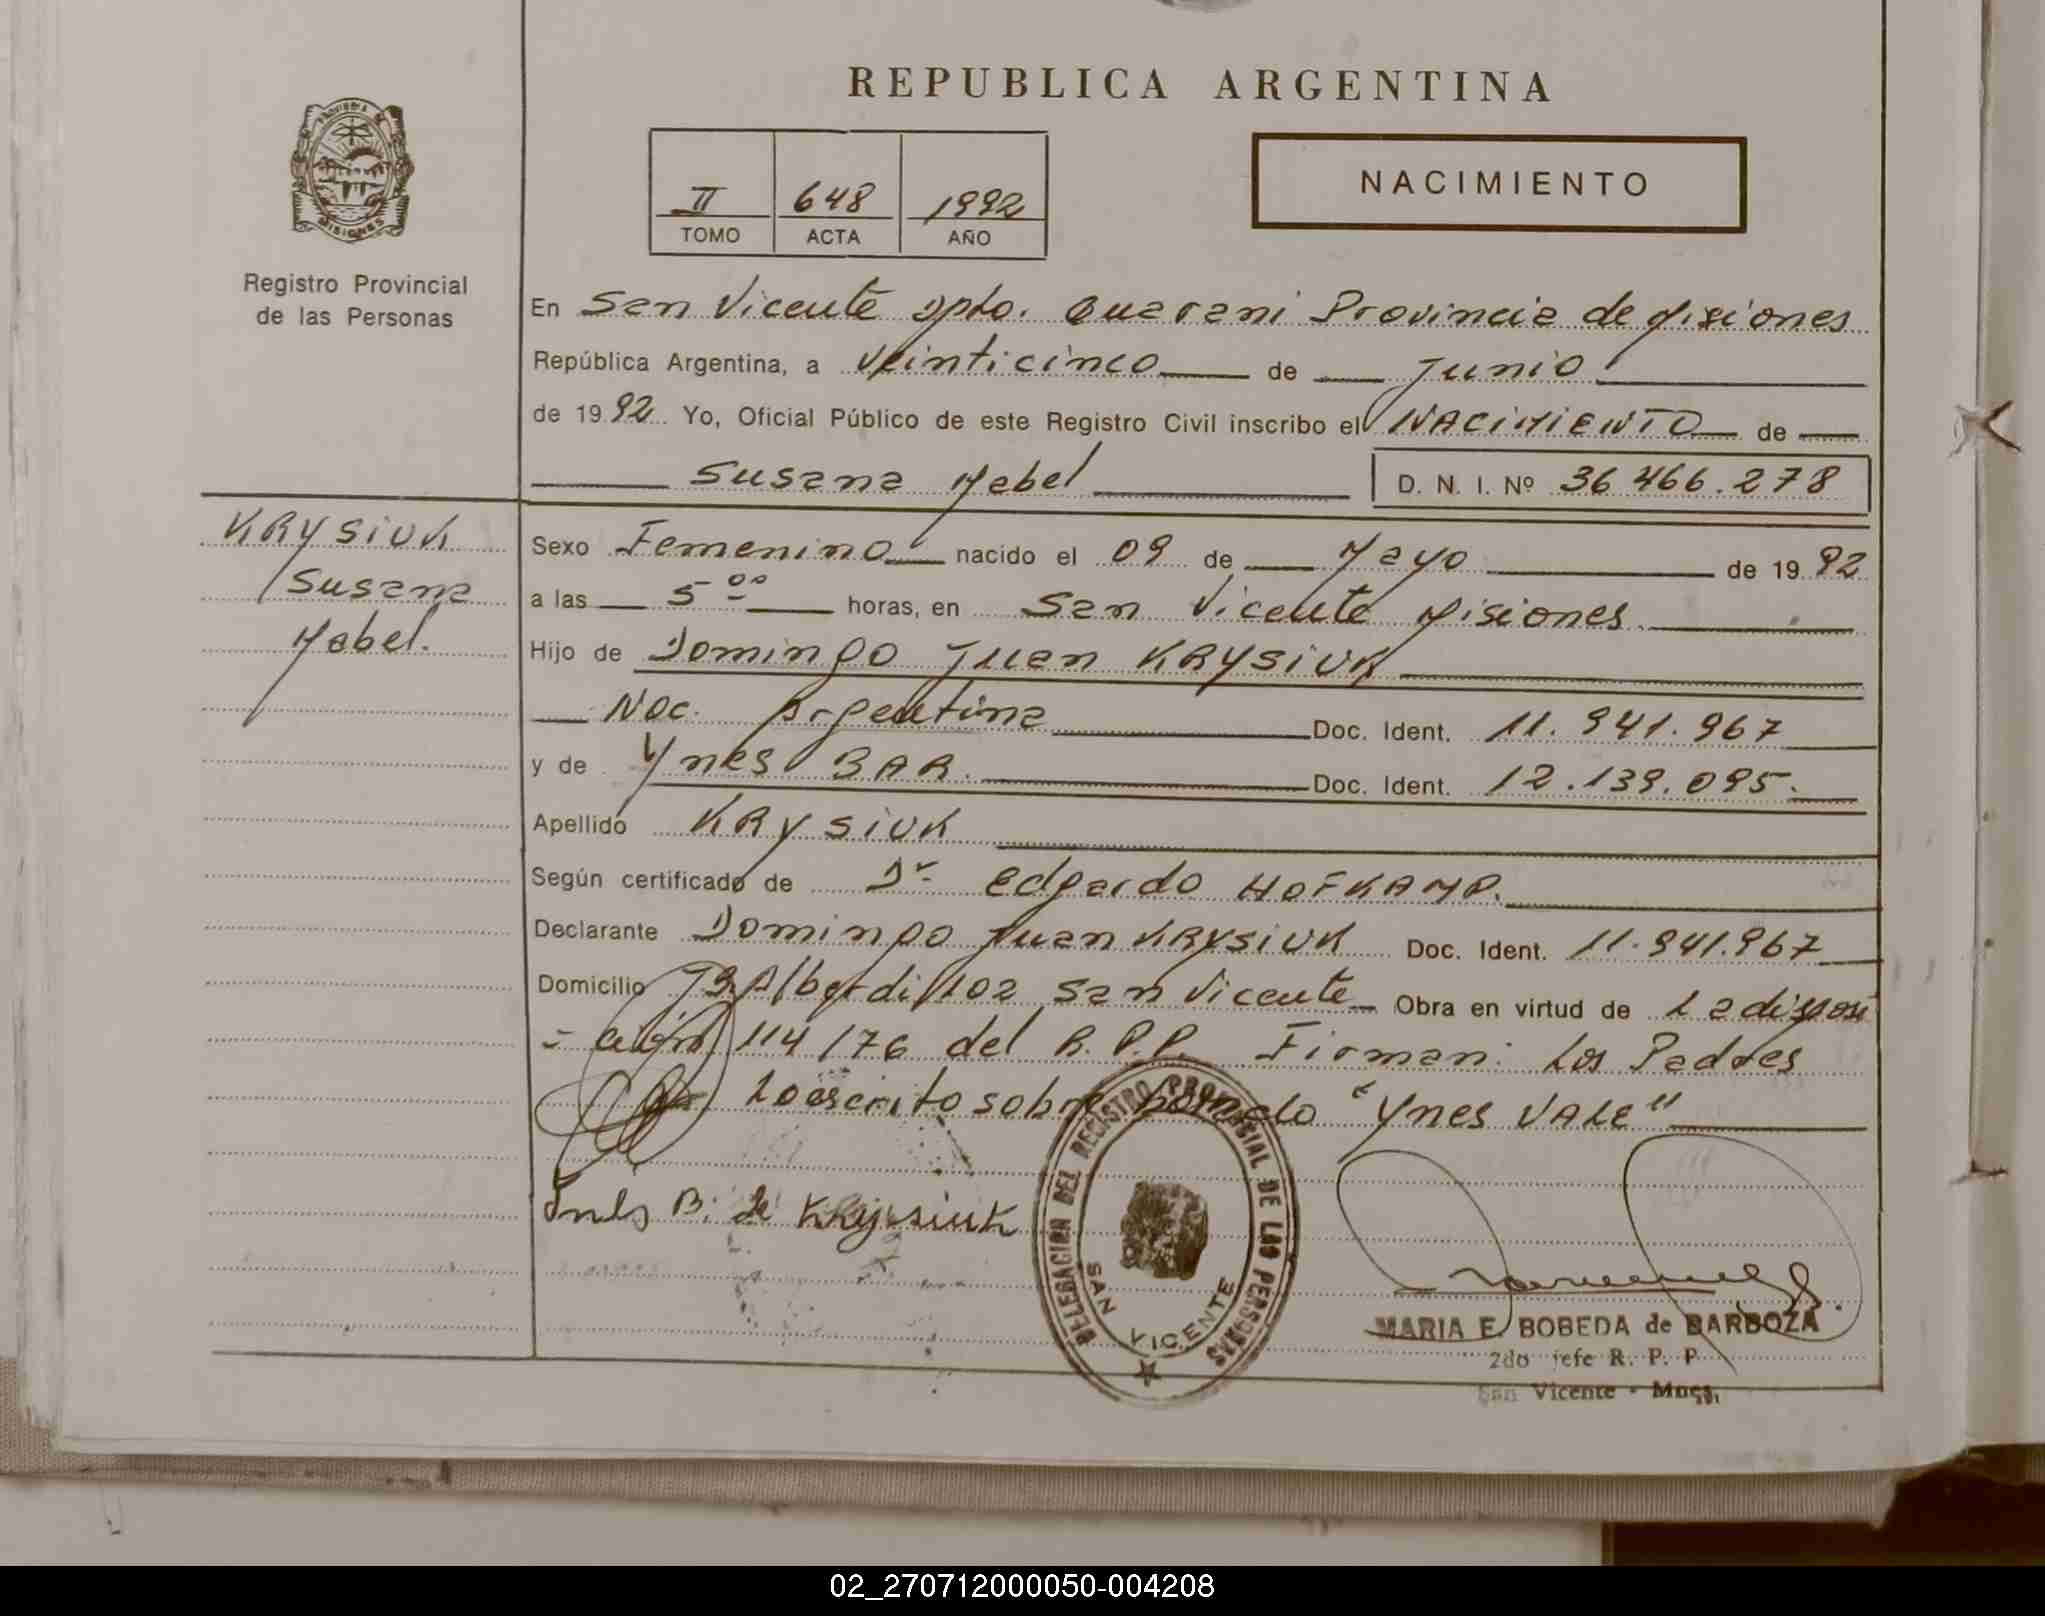 REPUBLICA ARGENTINA
PROVINCIA DE
MISIONES
Registro Provincial
de las Personas
II 648 1992
TOMO ACTA AÑO
NACIMIENTO
En San Vicente Dpto. Guarani Provincia de Misiones
República Argentina, a Veinticinco de Junio
de 1992 Yo, Oficial Público de este Registro Civil inscribo el NACIMIENTO de
Susana Mabel D. N. I. Nº 36 466.278
KRYSIUK
Susana
Mabel.
Sexo Femenino nacido el 09 de Mayo de 1992
a las 5 00 horas, en San Vicente Misiones.
Hijo de Domingo Juan KRYSIUK
Nac. Argentina Doc. Ident. 11.941.967
y de Ynes BAR. Doc. Ident. 12.139.095.
Apellido KRYSIUK
Según certificado de Dr Edgardo HOFKAMP.
Declarante Domingo Juan KRYSIUK Doc. Ident. 11.941.967
Domicilio J.B. Alberdi 102 San Vicente Obra en virtud de La disposi
= ción 114/76 del R.P.P. Firman: Los Padres
Lo escrito sobre borrado "Ynes VALE"
Inés B. de Krysiuk
DELEGACION DEL REGISTRO PROVINCIAL DE LAS PERSONAS
SAN VICENTE
MARIA E. BOBEDA de BARBOZA
2do jefe R. P. P
San Vicente - Mnes.
02_270712000050-004208